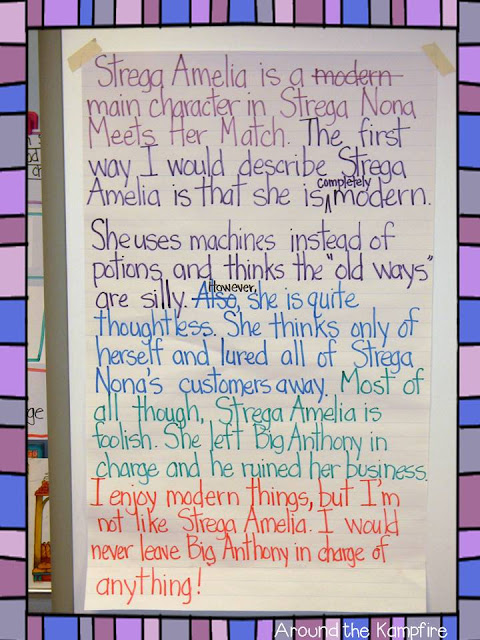 Strega Amelia is a modern
main character in Strega Nona
Meets Her Match. The first
way I would describe Strega
Amelia is that she is completely modern.
She uses machines instead of
potions and thinks the "old ways"
are silly. Also, However, she is quite
thoughtless. She thinks only of
herself and lured all of Strega
Nona's customers away. Most of
all though, Strega Amelia is
foolish. She left Big Anthony in
charge and he ruined her business.
I enjoy modern things, but I'm
not like Strega Amelia. I would
never leave Big Anthony in charge of
anything!
Around the Kampfire